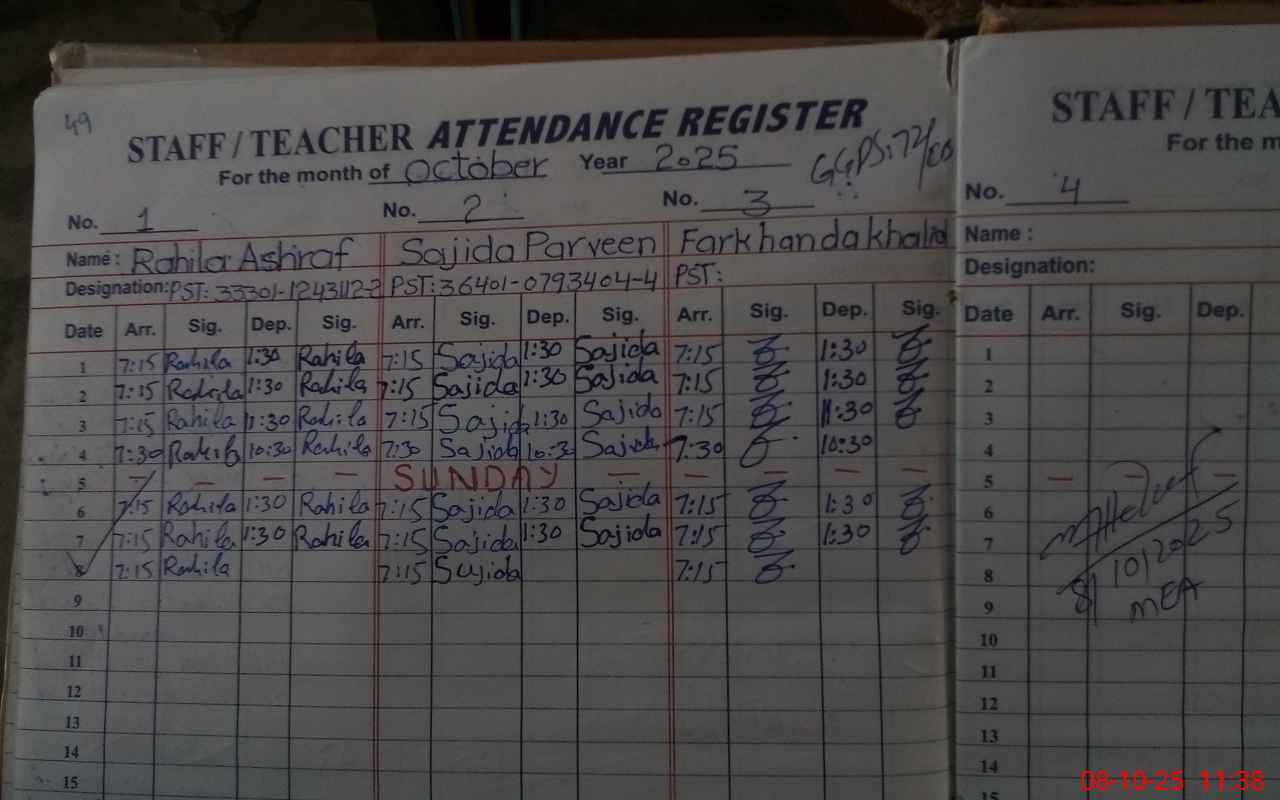 49
STAFF / TEACHER ATTENDANCE REGISTER
STAFF / TEA
For the month of October Year 2025 GGPS:72/
For the m
No. 1 No. 2 No. 3 No. 4
Name : Rahila Ashraf Sajida Parveen Farkhanda khalid Name :
Designation: PST: 33301-1243112-2 PST:36401-0793404-4 PST: Designation:
Date Arr. Sig. Dep. Sig. Arr. Sig. Dep. Sig. Arr. Sig. Dep. Sig. Date Arr. Sig. Dep.
1 7:15 Rahila 1:30 Rahila 7:15 Sajida 1:30 Sajida 7:15 1:30 1
2 7:15 Rahila 1:30 Rahila 7:15 Sajida 1:30 Sajida 7:15 1:30 2
3 7:15 Rahila 1:30 Rahila 7:15 Sajida 1:30 Sajida 7:15 11:30 3
4 7:30 Rahila 10:30 Rahila 7:30 Sajida 10:30 Sajida 7:30 10:30 4
5 – – – – SUNDAY – – – – – 5 – – –
6 7:15 Rahila 1:30 Rahila 7:15 Sajida 1:30 Sajida 7:15 1:30 6
7 7:15 Rahila 1:30 Rahila 7:15 Sajida 1:30 Sajida 7:15 1:30 7
8 7:15 Rahila 7:15 Sajida 7:15 8
8/10/2025
9 9
MEA
10 10
11 11
12 12
13 13
14 14
15 15
08-10-25 11:38